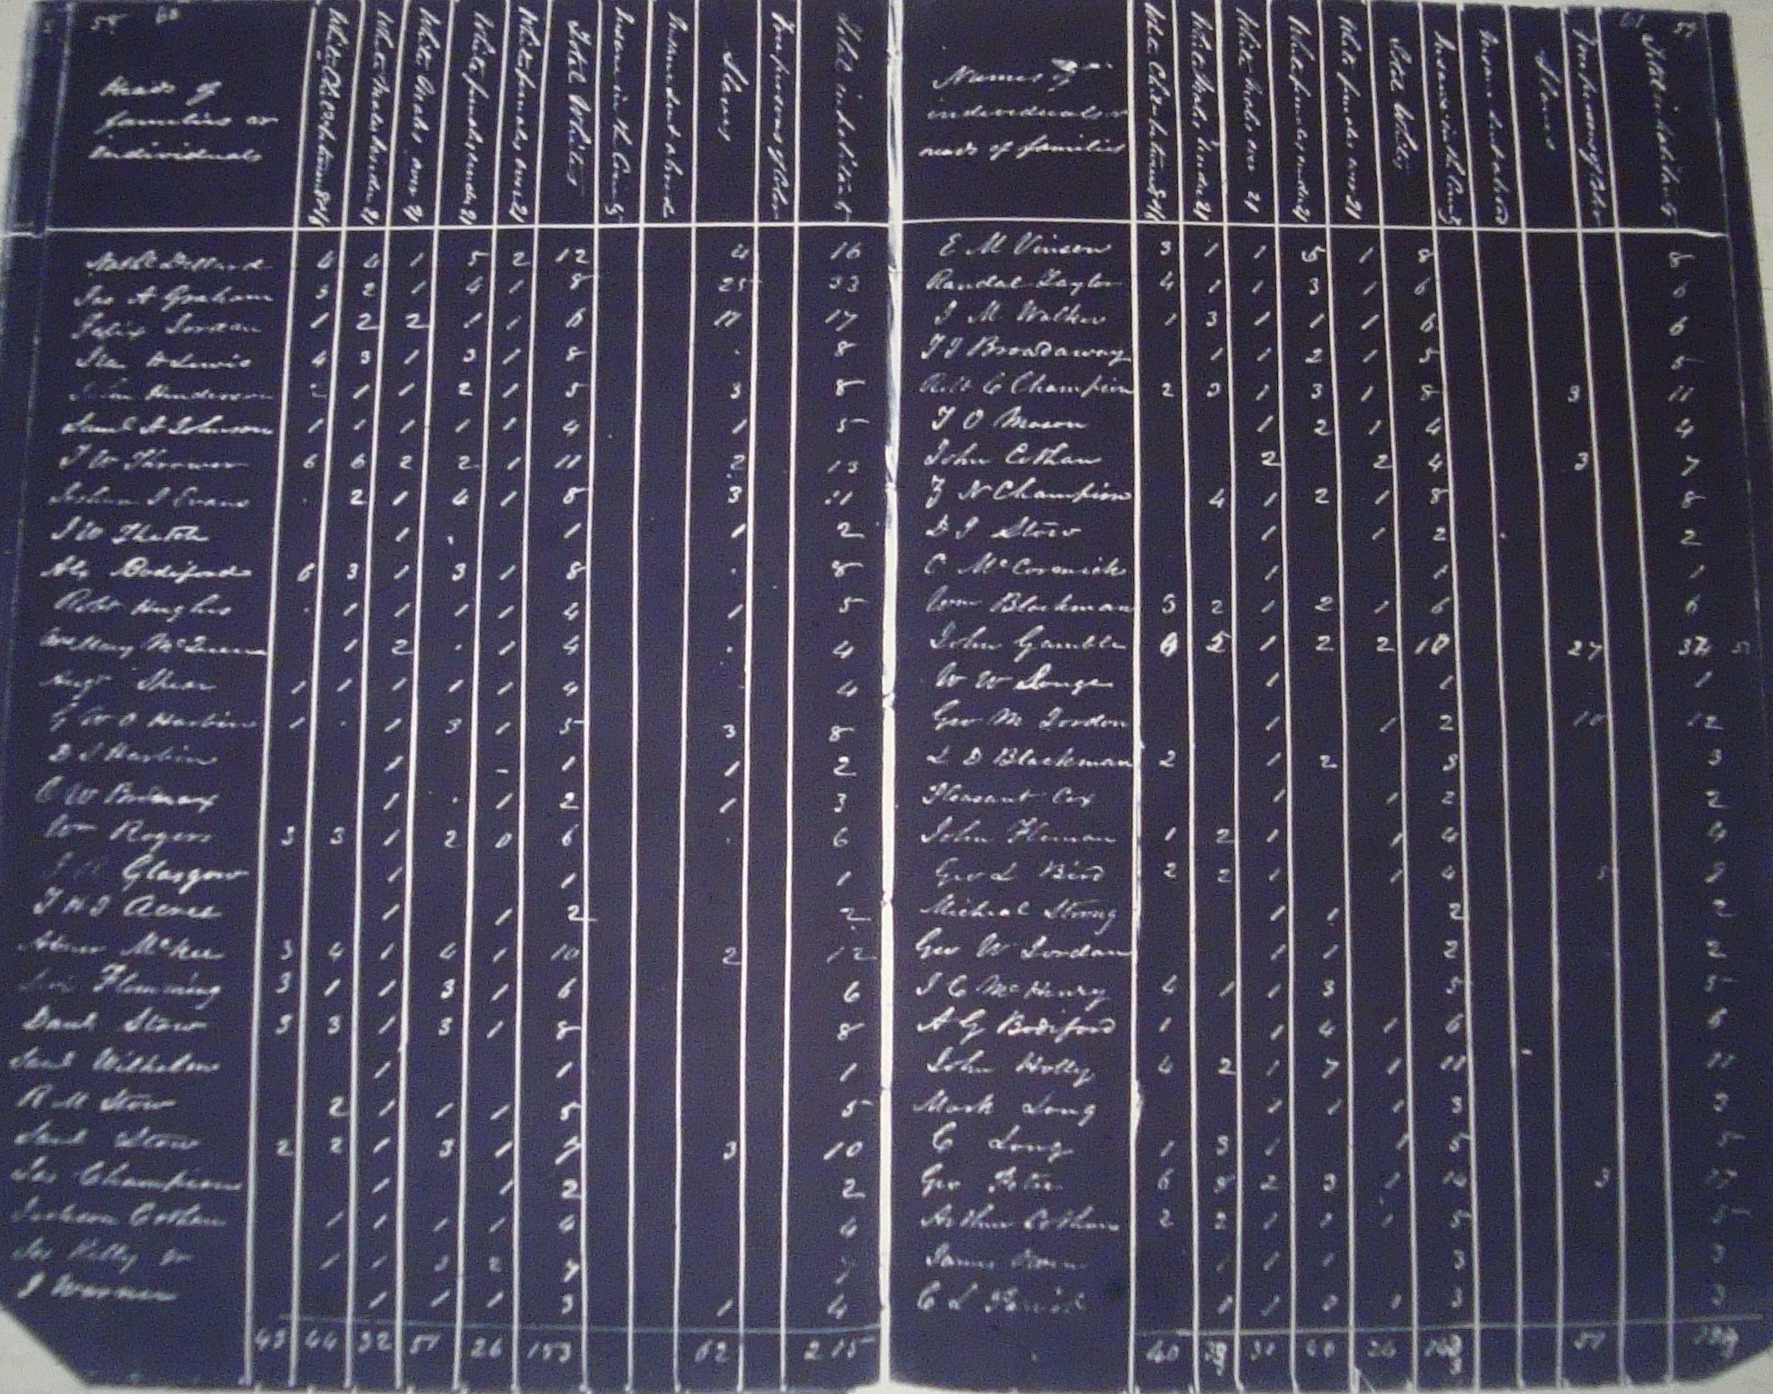 58 60
Heads of
families or
individuals
White Children between 8 & 16
White Males under 21
White Males over 21
White females under 21
White females over 21
Total Whites
Insane in the County
Insane sent abroad
Slaves
Free persons of Color
Total inhabitants
Nathl Dillard 4 4 1 5 2 12 4 16
Jas A Graham 3 2 1 4 1 8 25 33
Felix Jordan 1 2 2 1 1 6 11 17
Ira H Lewis 4 3 1 3 1 8 8
John Henderson 2 1 1 2 1 5 3 8
Saml H Johnson 1 1 1 1 1 4 1 5
J W Thrower 6 6 2 2 1 11 2 13
Joshua J Evans 2 1 4 1 8 3 11
J W Thatch 1 1 1 2
Bodiford 6 3 1 3 1 8 8
Robt Hughs 1 1 1 1 4 1 5
Mary McQueen 1 2 1 4 4
Shear 1 1 1 1 1 4 4
G W O Harbin 1 1 3 1 5 3 8
D S Harbin 1 1 1 2
C W 1 1 2 1 3
Wm Rogers 3 3 1 2 0 6 6
Glasgow 1 1 1
J H J Acree 1 1 2 2
Abner McKee 3 4 1 4 1 10 2 12
Levi Flemming 3 1 1 3 1 6 6
Danl Stow 3 3 1 3 1 8 8
Saml Wilhelm 1 1 1
R M Stow 2 1 1 1 5 5
Saml Stow 2 2 1 3 1 7 3 10
Jas Champion 1 1 2 2
Jackson Cothan 1 1 1 1 4 4
Jas Kelly 1 1 3 2 7 7
J 1 1 1 3 1 4
45 44 32 51 26 153 62 215
61 59
Names of
individuals or
heads of families
White Children between 8 & 16
White Males under 21
White Males over 21
White females under 21
White females over 21
Total Whites
Insane in the County
Insane sent abroad
Slaves
Free persons of Color
Total inhabitants
E M Vinson 3 1 1 5 1 8 8
Randal Taylor 4 1 1 3 1 6 6
J M Walker 1 3 1 1 1 6 6
T J Broadaway 1 1 2 1 5 5
Robt C Champion 2 3 1 3 1 8 3 11
T O Mason 1 2 1 4 4
John Cothan 2 2 4 3 7
Z N Champion 4 1 2 1 8 8
D J Stow 1 1 2 2
C McCormick 1 1 1
Wm Blackman 3 2 1 2 1 6 6
John Gamble 5 1 2 2 10 27 37
W W Longe 1 1 1
Geo M Jordon 1 1 2 10 12
L D Blackman 2 1 2 3 3
Pleasant Cox 1 1 2 2
John 1 2 1 1 4 4
Geo L Bird 2 2 1 1 4 5 9
Micheal Strong 1 1 2 2
Geo W Jordan 1 1 2 2
J C McHenry 4 1 1 3 5 5
A G Bodiford 1 1 4 1 6 6
John Holly 4 2 1 7 1 11 11
Mark Long 1 1 1 3 3
C Long 1 3 1 1 5 5
Geo 6 8 2 3 1 14 3 17
Arthur Cothan 2 2 1 1 1 5 5
James 1 1 1 3 3
C L 1 1 0 1 3 3
40 31 26 51